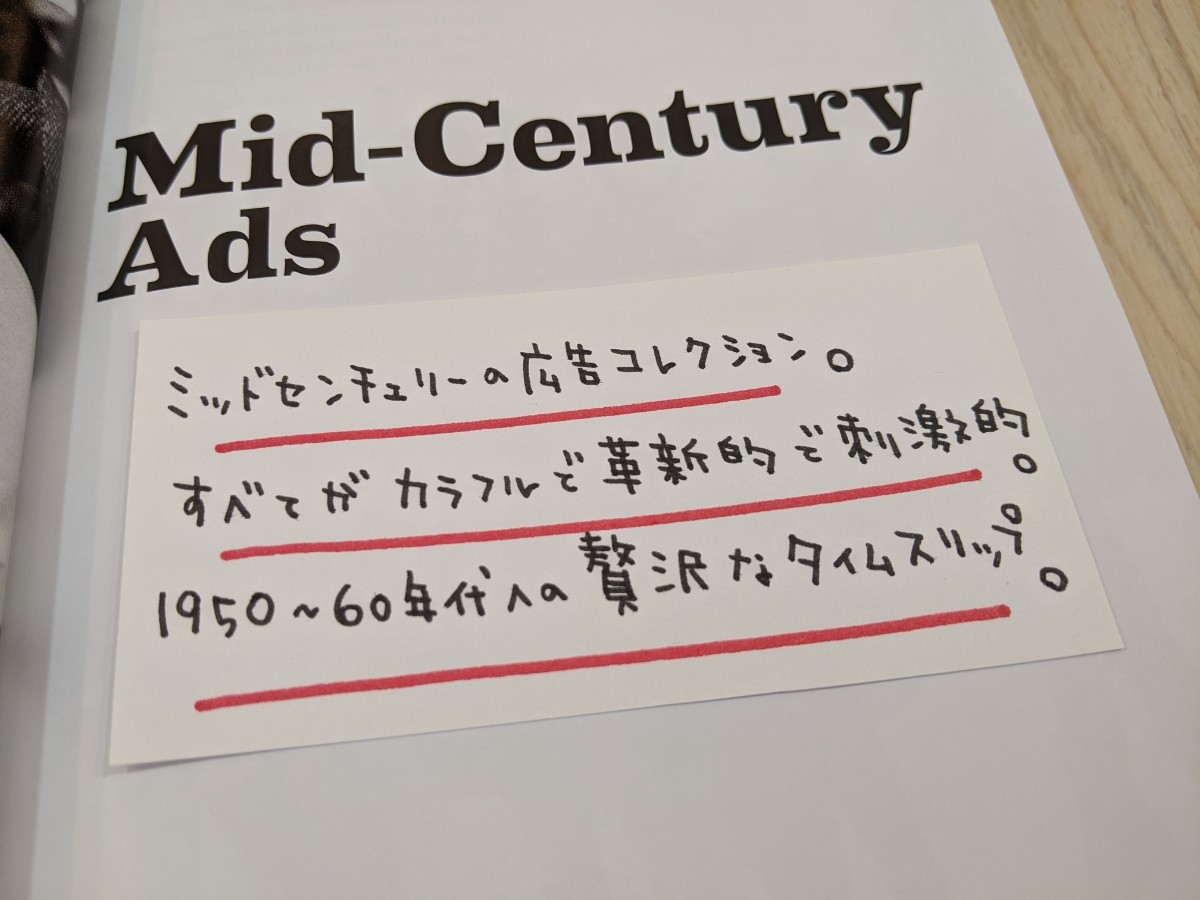 Mid-Century
Ads
ミッドセンチュリーの広告コレクション。
すべてがカラフルで革新的で刺激的。
1950~60年代への贅沢なタイムスリップ。